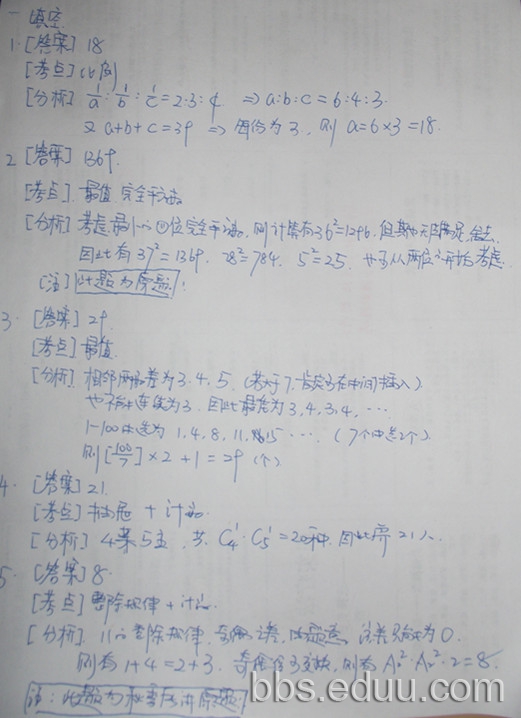 一 填空
1. [答案] 18
[考点] 比例
[分析] 1/a : 1/b : 1/c = 2:3:4 ⇒ a:b:c = 6:4:3.
又 a+b+c = 39 ⇒ 每份为 3, 则 a=6×3=18.
2 [答案] 1369.
[考点] 最值. 完全平方数
[分析] 考虑最小的四位完全平方数, 则计算有36²=1296, 但其中不满足, 舍去.
因此有 37²=1369. 28²=784. 5²=25. 也可从两位开始考虑.
[注] 此题为原题!
3. [答案] 29.
[考点] 最值.
[分析] 相邻两数差为 3. 4. 5. (若大于7, 肯定可在中间插入)
也不能连续为3. 因此最差为 3, 4, 3, 4, ...
1-100中选为 1, 4, 8, 11, 15 ... (7个中选2个)
则 [100/7] × 2 + 1 = 29 (个)
4. [答案] 21.
[考点] 抽屉 + 计数.
[分析] 4菜5主, 共 C₄¹·C₅¹ = 20种. 因此需 21人.
5. [答案] 8.
[考点] 整除规律 + 计数.
[分析] 11的整除规律, 奇偶 差 为0.
则有 1+4=2+3. 则有 A₂²·A₂²·2=8.
注: 此题为 原题.
bbs.eduu.com